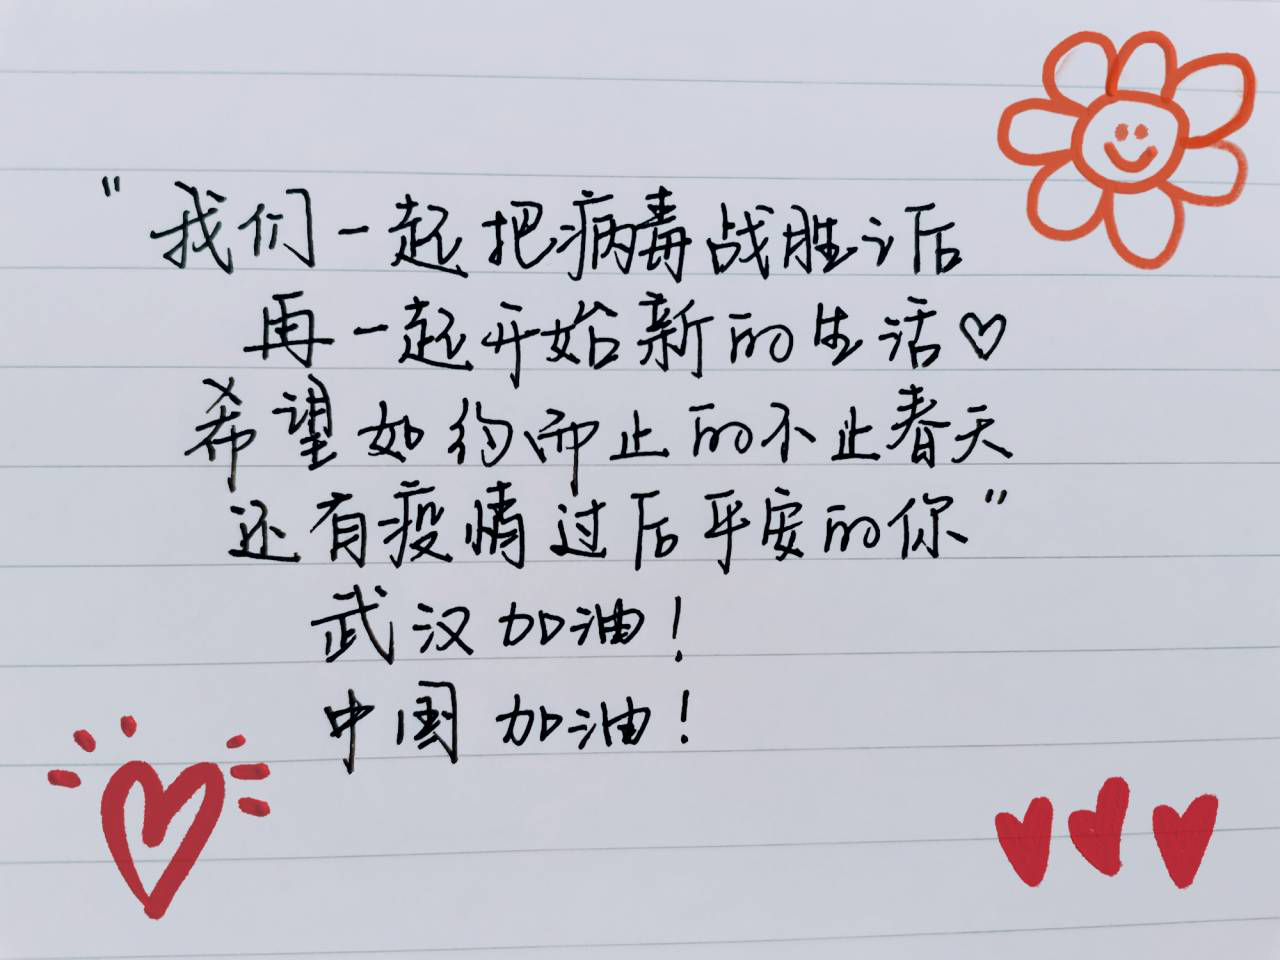 "我们一起把病毒战胜以后
再一起开始新的生活♡
希望如约而止的不止春天
还有疫情过后平安的你"
武汉加油!
中国加油!